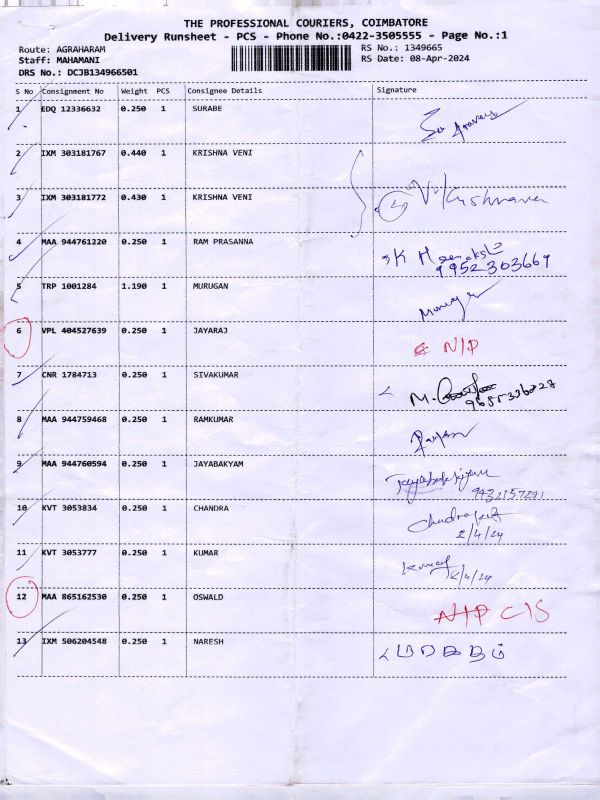 THE PROFESSIONAL COURIERS, COIMBATORE
Delivery Runsheet - PCS - Phone No.:0422-3505555 - Page No.:1
Route: AGRAHARAM
Staff: MAHAMANI
DRS No.: DCJB134966501
RS No.: 1349665
RS Date: 08-Apr-2024
S No Consignment No Weight PCS Consignee Details Signature
1 EDQ 12336632 0.250 1 SURABE
2 IXM 303181767 0.440 1 KRISHNA VENI
3 IXM 303181772 0.430 1 KRISHNA VENI
4 MAA 944761220 0.250 1 RAM PRASANNA
9952303669
5 TRP 1001284 1.190 1 MURUGAN
6 VPL 404527639 0.250 1 JAYARAJ N/P
7 CNR 1784713 0.250 1 SIVAKUMAR
8 MAA 944759468 0.250 1 RAMKUMAR
9 MAA 944760594 0.250 1 JAYABAKYAM
10 KVT 3053834 0.250 1 CHANDRA
11 KVT 3053777 0.250 1 KUMAR
12 MAA 865162530 0.250 1 OSWALD C/S
13 IXM 506204548 0.250 1 NARESH